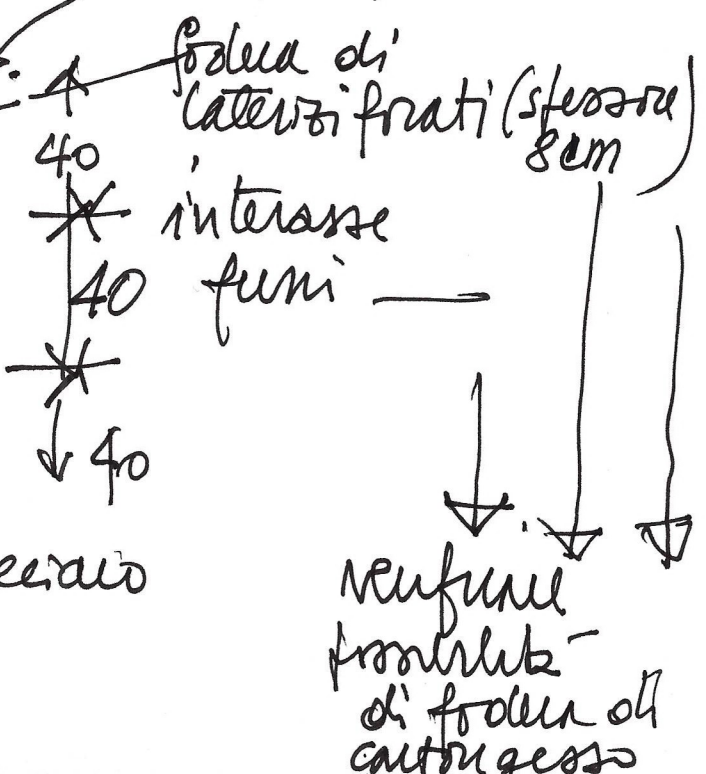 fodera di
laterizi forati (spessore
8cm
40
interasse
40 funi
40
acciaio
possibilità
di fodera di
cartongesso